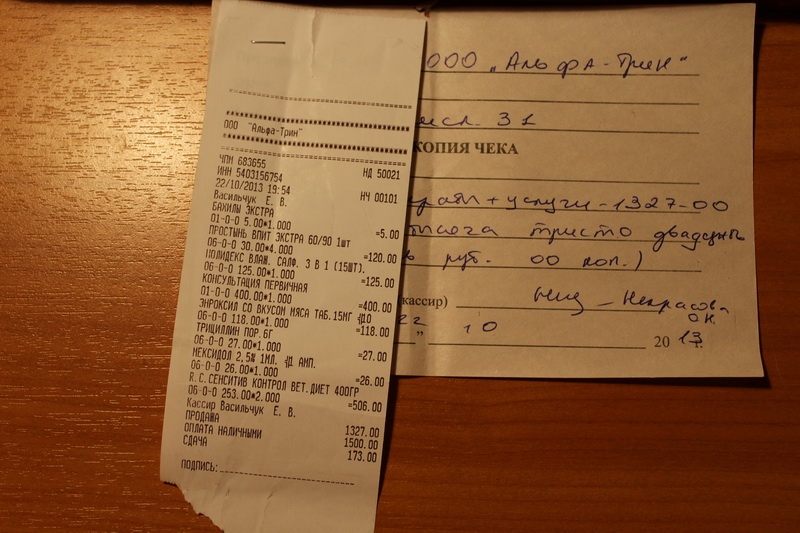 ООО "Альфа-Трин"
ЧПН 683655 НД 50021
ИНН 5403156754
22/10/2013 19:54 НЧ 00101
Васильчук Е. В.
БАХИЛЫ ЭКСТРА
01-0-0 5.00*1.000 =5.00
ПРОСТЫНЬ ВПИТ ЭКСТРА 60/90 1шт
06-0-0 30.00*4.000 =120.00
ПОЛИДЕКС ВЛАЖ. САЛФ. 3 В 1 (15ШТ).
06-0-0 125.00*1.000 =125.00
КОНСУЛЬТАЦИЯ ПЕРВИЧНАЯ
01-0-0 400.00*1.000 =400.00
ЭНРОКСИЛ СО ВКУСОМ МЯСА ТАБ.15МГ #10
06-0-0 118.00*1.000 =118.00
ТРИЦИЛЛИН ПОР.6Г
06-0-0 27.00*1.000 =27.00
МЕКСИДОЛ 2,5% 1МЛ. #1 АМП.
06-0-0 26.00*1.000 =26.00
R.C.СЕНСИТИВ КОНТРОЛ ВЕТ.ДИЕТ 400ГР
06-0-0 253.00*2.000 =506.00
Кассир Васильчук Е. В.
ПРОДАЖА 1327.00
ОПЛАТА НАЛИЧНЫМИ 1500.00
СДАЧА 173.00
ПОДПИСЬ:
ООО "Альфа-Трин"
31
КОПИЯ ЧЕКА
+ услуги - 1327-00
тысяча триста двадцать
руб. 00 коп.)
кассир) Некрасова
О.Н.
22 " 10 2013 г.